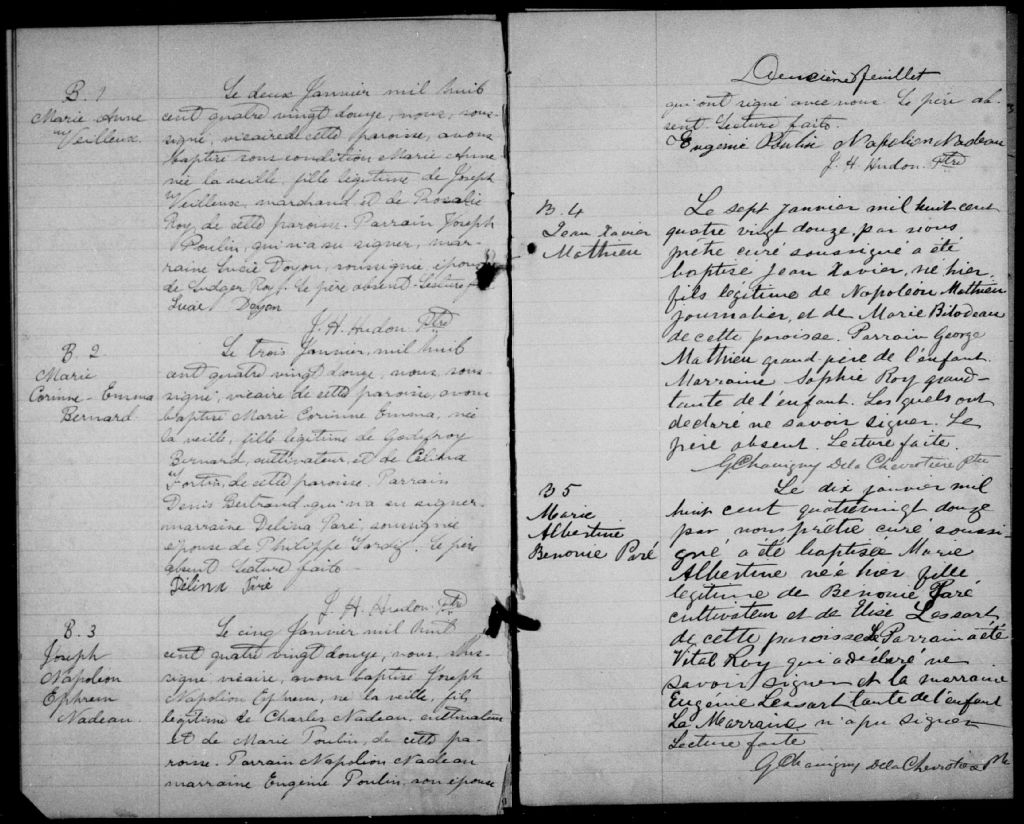 B. 1
Marie Anne
Veilleux.
Le deux Janvier mil huit
cent quatre vingt douze, nous, sous-
signé, vicaire de cette paroisse, avons
baptisé sous condition Marie Anne
née la veille, fille légitime de Joseph
Veilleux, marchand et de Rosalie
Roy, de cette paroisse. Parrain Joseph
Poulin, qui n'a su signer, mar-
raine Lucie Doyon, soussignée, épouse
de Ludger Roy. Le père absent. Lecture
Lucie Doyon
J. H. Hudon Ptre
B. 2
Marie
Corinne - Emma
Bernard
Le trois Janvier, mil huit
cent quatre vingt douze, nous, sous-
signé, vicaire de cette paroisse, avons
baptisé Marie Corinne Emma, née
la veille, fille légitime de Godefroy
Bernard, cultivateur, et de Célina
Fortin, de cette paroisse. Parrain
Denis Bertrand qui n'a su signer,
marraine Delina Paré, soussignée
épouse de Philippe Tardif. Le père
absent. Lecture faite.
Délina Paré
J. H. Hudon Ptre
B. 3
Joseph
Napoléon
Ephrem
Nadeau.
Le cinq Janvier mil huit
cent quatre vingt douze, nous, sous-
signé vicaire, avons baptisé Joseph
Napoléon Ephrem, né la veille, fils
légitime de Charles Nadeau, cultivateur
et de Marie Poulin, de cette pa-
roisse. Parrain Napoléon Nadeau
marraine Eugénie Poulin, son épouse
Deuxième feuillet
qui ont signé avec nous. Le père ab-
sent. Lecture faite.
Eugénie Poulin Napoléon Nadeau
J. H. Hudon. Ptre
B. 4
Jean Xavier
Mathieu
Le sept janvier mil huit cent
quatre vingt douze, par nous
prêtre curé soussigné a été
baptisé Jean Xavier, né hier,
fils légitime de Napoléon Mathieu
journalier, et de Marie Bilodeau
de cette paroisse. Parrain George
Mathieu grand père de l'enfant.
Marraine Sophie Roy grand-
tante de l'enfant. Les quels ont
declaré ne savoir signer. Le
père absent. Lecture faite.
G Chavigny De la Chevrotière Ptre
B 5
Marie
Albertine
Benonie Paré
Le dix janvier mil
huit cent quatrevingt douze
par nous prêtre curé soussi-
gné a été baptisée Marie
Albertine née hier fille
légitime de Benonie Paré
cultivateur et de Elise Lessart
de cette paroisse Le Parrain a été
Vital Roy qui a déclaré ne
savoir signer et la marraine
Eugénie Lessart tante de l'enfant
La Marraine n'a pu signer
Lecture faite
G Chavigny De la Chevrotière Ptre